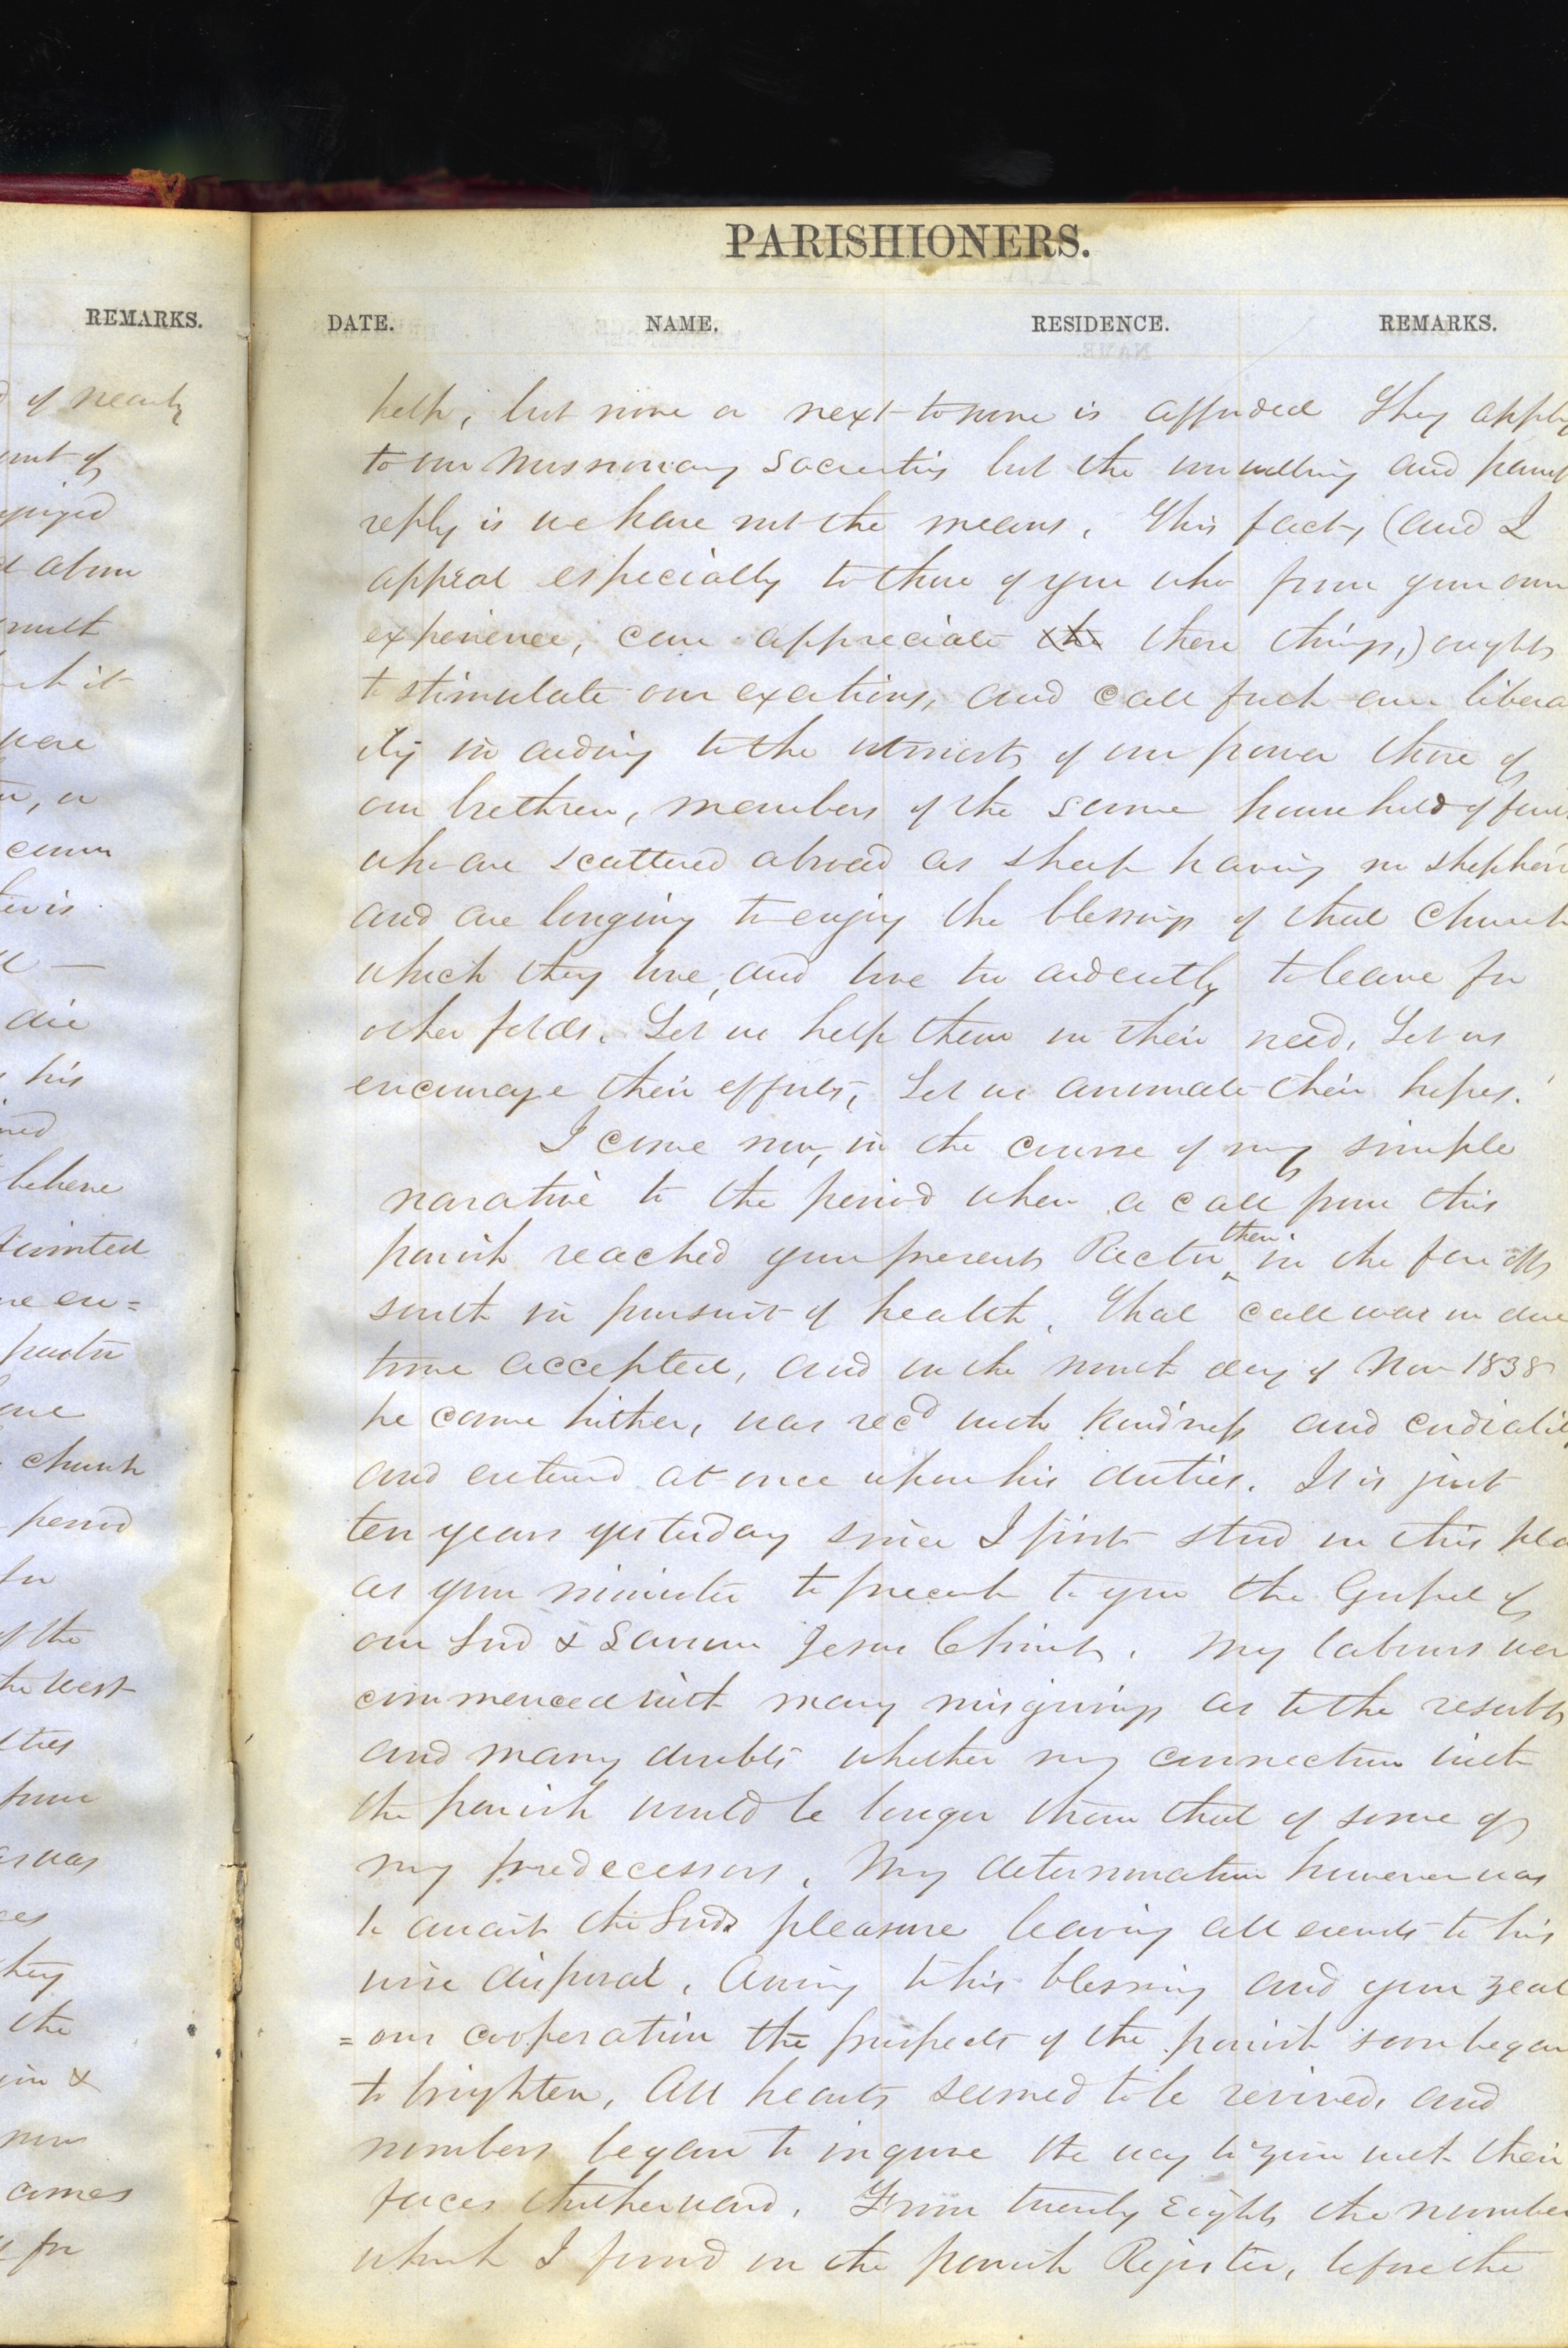 PARISHIONERS.
REMARKS.
DATE. NAME. RESIDENCE. REMARKS.
of nearly
d above
church
period
of the
the west
from
the
help, but none or next to none is afforded They apply
to our Missionary Societies but the unwilling and painf
reply is we have not the means. This fact, (and I
appeal especially to those of you who from your own
experience, can appreciate the these things,) ought
to stimulate our exertions, and call forth our libera
ity in aiding to the utmost of our power those of
our brethren, members of the same household of
who are scattered abroad as sheep having no shepherd
and are longing to enjoy the blessings of that Church
which they love, and love too ardently to leave for
other folds. Let us help them in their need, Let us
encourage their efforts, Let us animate their hopes.
I come now, in the course of my simple
narative to the period when a call from this
parish reached your present Rector then in the far off
south in pursuit of health. That call was in due
time accepted, and on the ninth day of Nov 1838
he came hither, was recd with kindness and cordiality
and entered at once upon his duties. It is just
ten years yesterday since I first stood in this pla
as your minister to preach to you the Gospel of
our Lord & Saviour Jesus Christ. My labours wer
commenced with many misgivings as to the results
and many doubts whether my connection with
the parish would be longer than that of some of
my predecessors. My determination however was
to await the Lords pleasure leaving all events to his
wise disposal. Owing to his blessing and your zeal
=ous cooperation the prospects of the parish soon began
to brighten, All hearts seemed to be revived, and
numbers began to inquire the way to Zion with their
faces thitherward. From twenty Eight, the number
which I found on the parish Register, before the